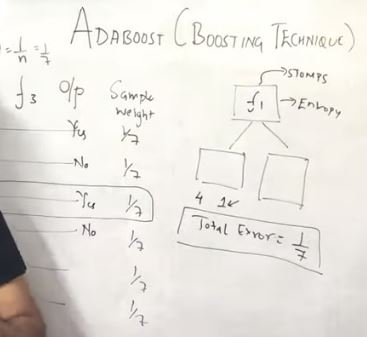 ADABOOST (BOOSTING TECHNIQUE)
= 1/n = 1/7
f3 O/p Sample weight
Yes 1/7
No 1/7
Yes 1/7
No 1/7
1/7
1/7
f1
→ STOMPS
→ Entropy
4 1
Total Error = 1/7